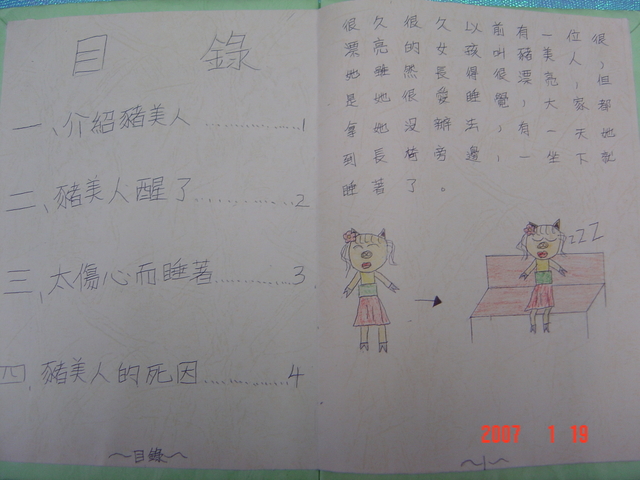 目 錄
一、介紹豬美人............1
二、豬美人醒了............2
三、太傷心而睡著..........3
四、豬美人的死因..........4
~目錄~
很久很久以前有一位很
漂亮的女孩叫豬美人,
她雖然長得很漂亮,但
是她很愛睡覺,大家都
拿她沒辦法,有一天她
到長椅旁邊,一坐下就
睡著了。
ZZZ
~1~
2007 1 19